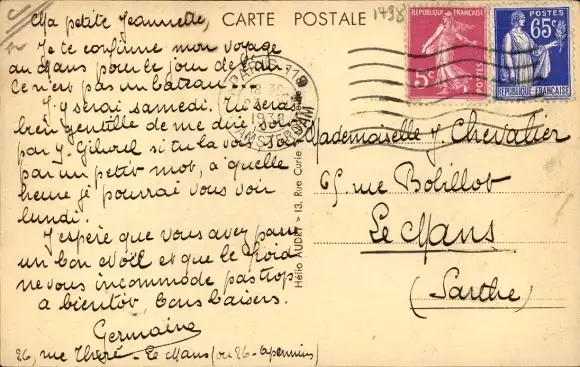 CARTE POSTALE
1498
Ma petite Jeannette,
Je te confirme mon voyage
au Mans pour le jour de l'an
Ce n'est pas un bateau...
J'y serai samedi. Tu serais
bien gentille de me dire soit
par J. si tu la vois, soit
par un petit mot, à quelle
heure je pourrai vous voir
lundi.
J'espère que vous avez passé
un bon Noël et que le froid
ne vous incommode pas trop
a bientôt, bons baisers.
Germaine
26, rue - Le Mans (ou 26 - )
RÉPUBLIQUE FRANÇAISE
5c
POSTES
POSTES
65c
RÉPUBLIQUE FRANÇAISE
PARIS 118
1938
AMSTERDAM
Hélio AUDRY > 13, Rue Curie
Mademoiselle J. Chevalier
65, rue Bolillot
Le Mans
(Sarthe)